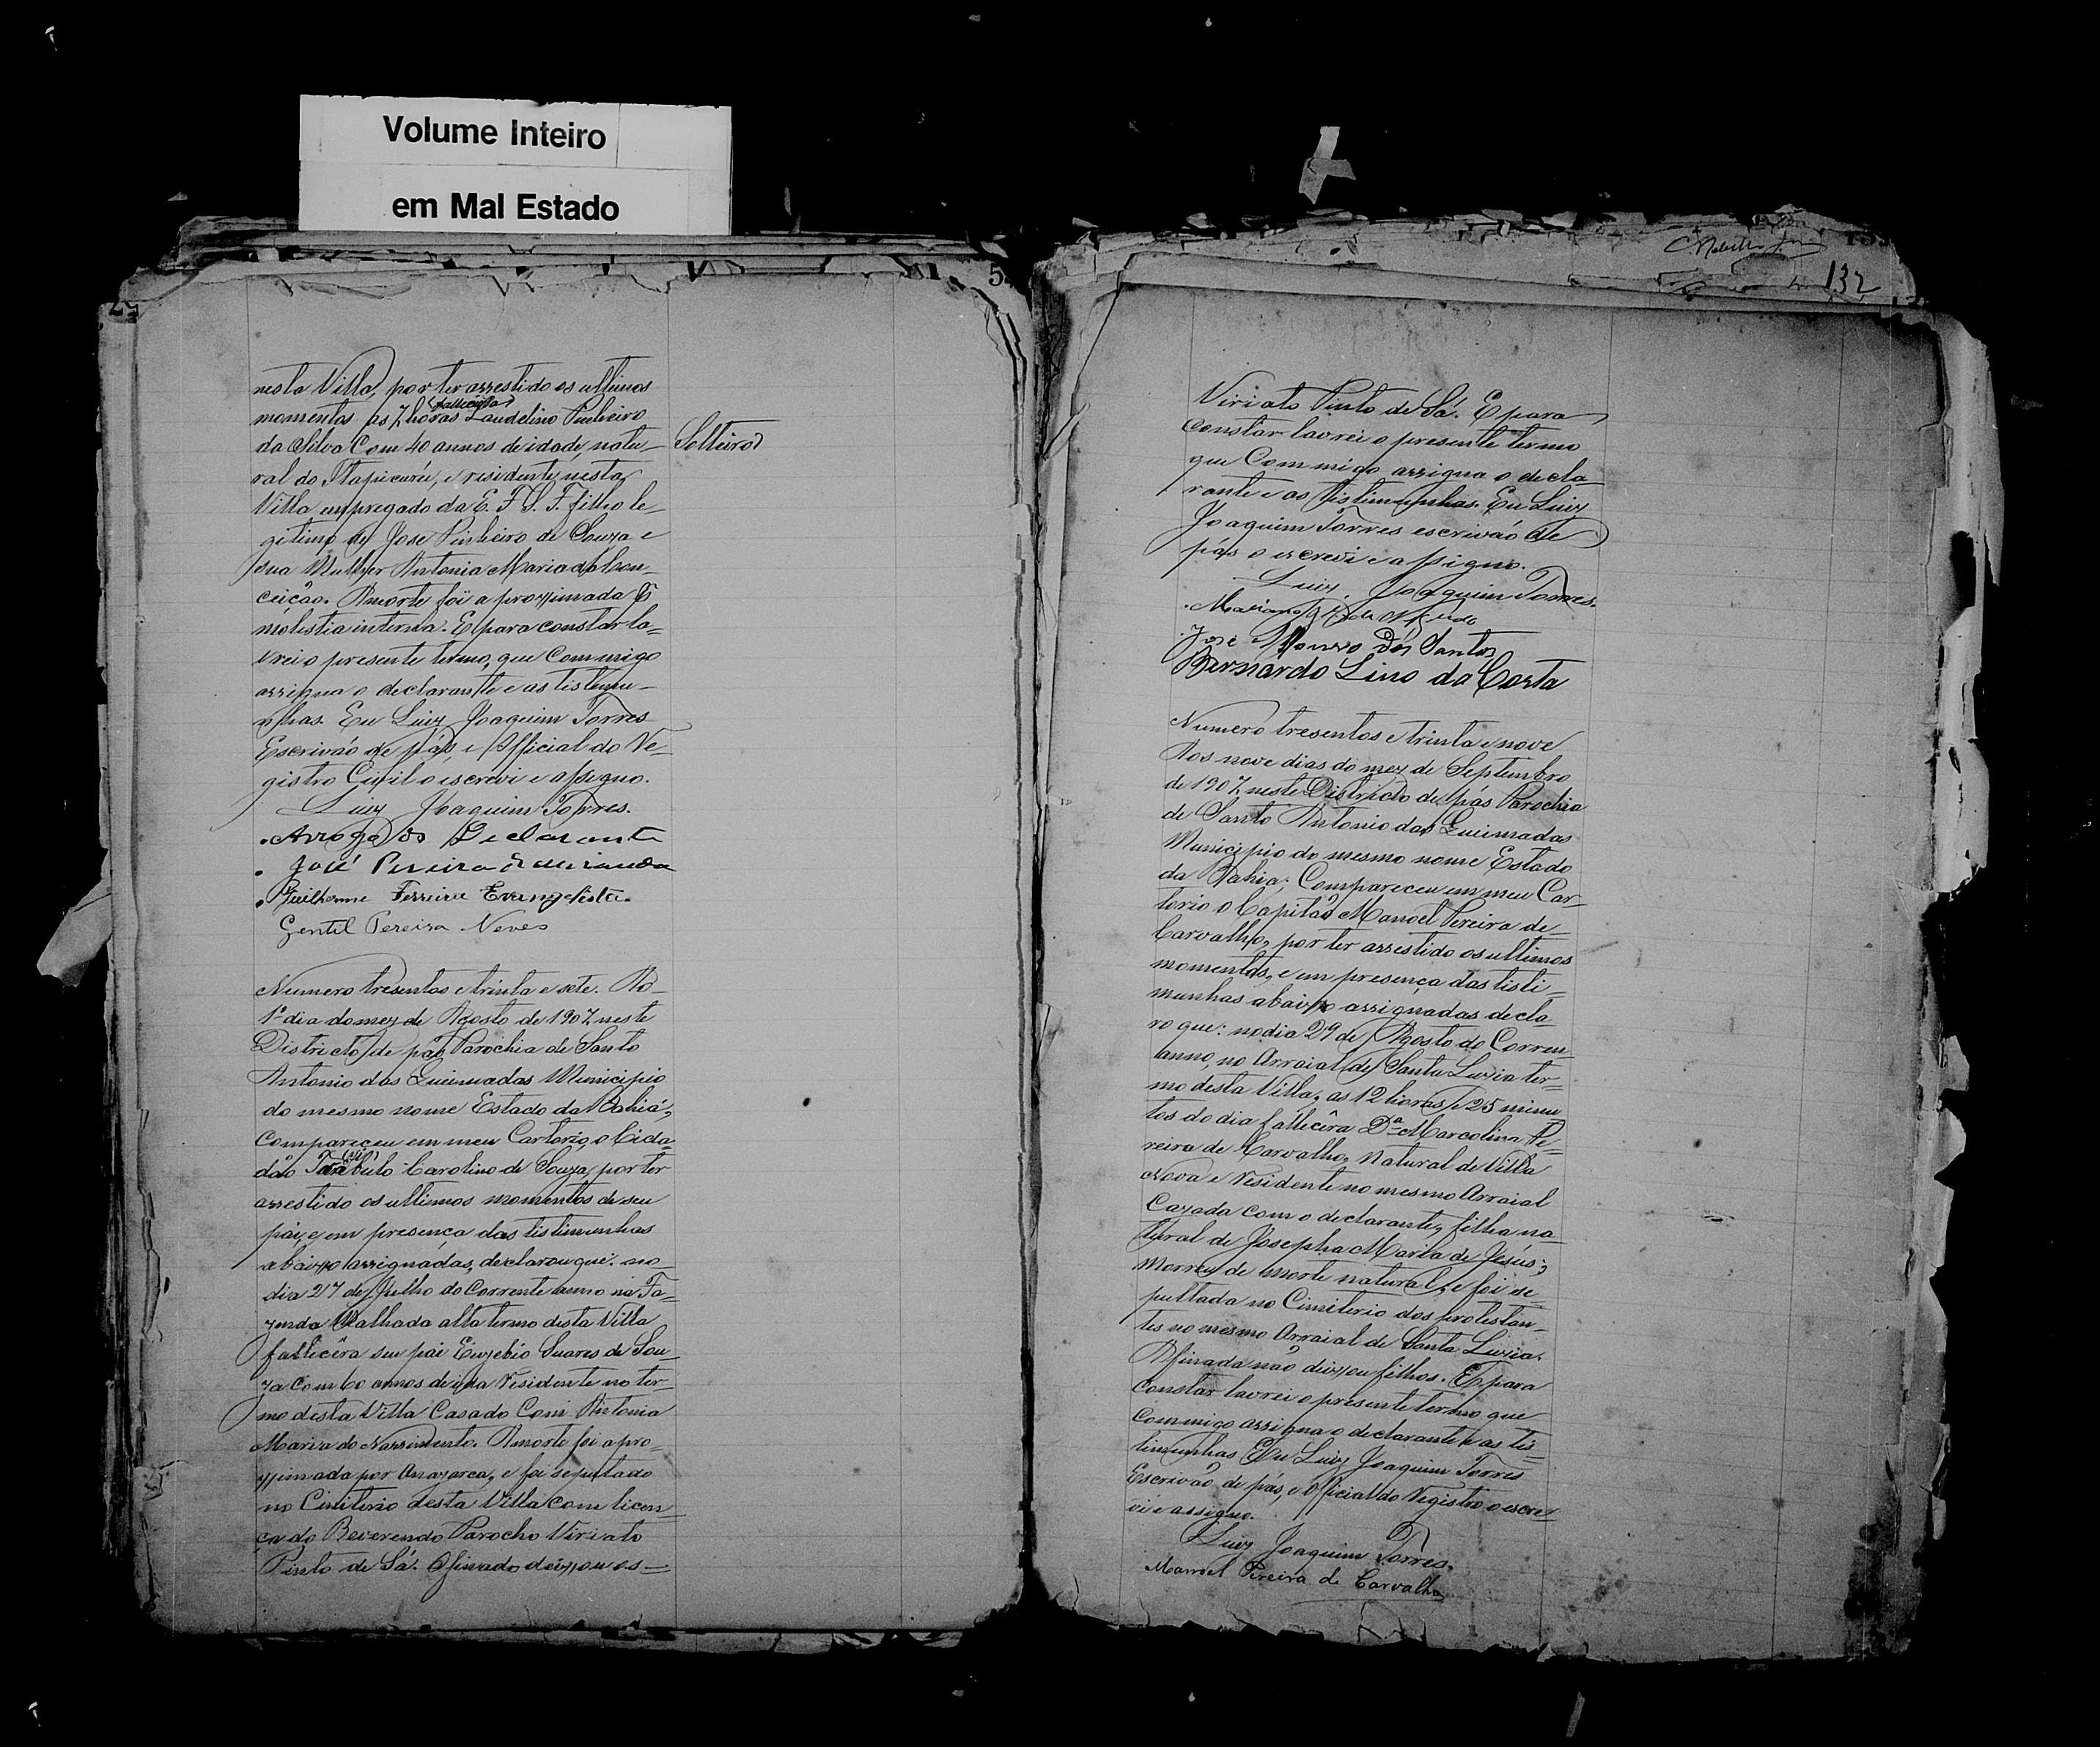 Volume Inteiro
em Mal Estado
5
nesta Villa, por ter assestido os ultimos
(fallecido)
momentos às 7 horas Laudelino Pinheiro
da Silva Com 40 annos de idade, natu-
Solteiro
ral do Itapicurú, e residente nesta
Villa empregado da E. F. S. F. filho le-
gitimo de Jose Pinheiro de Souza e
sua Mulher Antonia Maria da Con-
ceicão. A morte foi a proximada
molistia interna. E para constar la-
vrei o presente termo, que Commigo
assigna o declarante e as tistemu-
nhas. Eu Luiz Joaquim Torres
Escrivaõ de pás, e Official do Re-
gistro Civil o iscrevi e assigno.
Luiz Joaquim Torres.
Arrogo do Declarante
José Pereira de Miranda
Guilherme Ferreira Evangelista.
Gentil Pereira Neves
Numero tresentos e trinta e sete. Ao
1º dia do mez de Agosto de 1907 neste
Districto de pás Parochia de Santo
Antonio das Queimadas Municipio
do mesmo nome Estado da Bahia,
Compareceu em meu Cartorio, o Cida-
dão Carolino de Souza, por ter
assestido os ultimos momentos de seu
pai, e em presença das tistimunhas
abaixo assignadas, declarou que: no
dia 27 de Julho do Corrente anno na Fa-
zenda Malhada alta termo desta Villa
fallicêra seu pai Euzebio Suares de Sou-
za com 60 annos de ida Residente no ter-
mo desta Villa Casado Com Antonia
Maria do Nassimento. A morte foi apro-
ximada por Anazarca, e foi sepultado
no Cimiterio desta Villa com licen-
ça do Reverendo Parocho Viriato
Pinto de Sá. O finado deixou os-
132
Viriato Pinto de Sá. E para
constar lavrei o presente termo
que Commigo assigna o decla-
rante e as tistimunhas. Eu Luiz
Joaquim Torres escrivaõ de
pás o escrevi e assigno.
Luiz Joaquim Torres.
José Afonso Dos Santos
Bernardo Lino da Costa
Numero tresentos e trinta e nove
Aos nove dias do mez de Septembro
de 1907 neste Districto de pás Parochia
de Santo Antonio das Queimadas
Municipio do mesmo nome Estado
da Bahia; Compareceu em meu Car-
torio o Capitaõ Manoel Pereira de
Carvalho, por ter assestido os ultimos
momentos, e em presença das tisti-
munhas abaixo assignadas decla-
ro que: no dia 29 de Agosto do Corren-
anno, no Arraial de Santa Luzia ter-
mo desta Villa, as 12 horas e 25 minu-
tos do dia fallicêra Dª Marcolina Pe-
reira de Carvalho, Natural de Villa
Nova e Residente no mesmo Arraial
Cazada com o declarante, filha na-
tural de Josepha Maria de Jesús;
Morreu de morte natural, e foi se-
pultada no Cimiterio dos protestan-
tes no mesmo Arraial de Santa Luzia.
A finada naõ deixou filhos. E para
Constar lavrei o presente termo que
Commigo assigna o declarante e as tis-
timunhas Eu Luiz Joaquim Torres
Escrivaõ de pás, e Official do Registro o escre-
vi e assigno.
Luiz Joaquim Torres.
Manoel Pereira de Carvalho